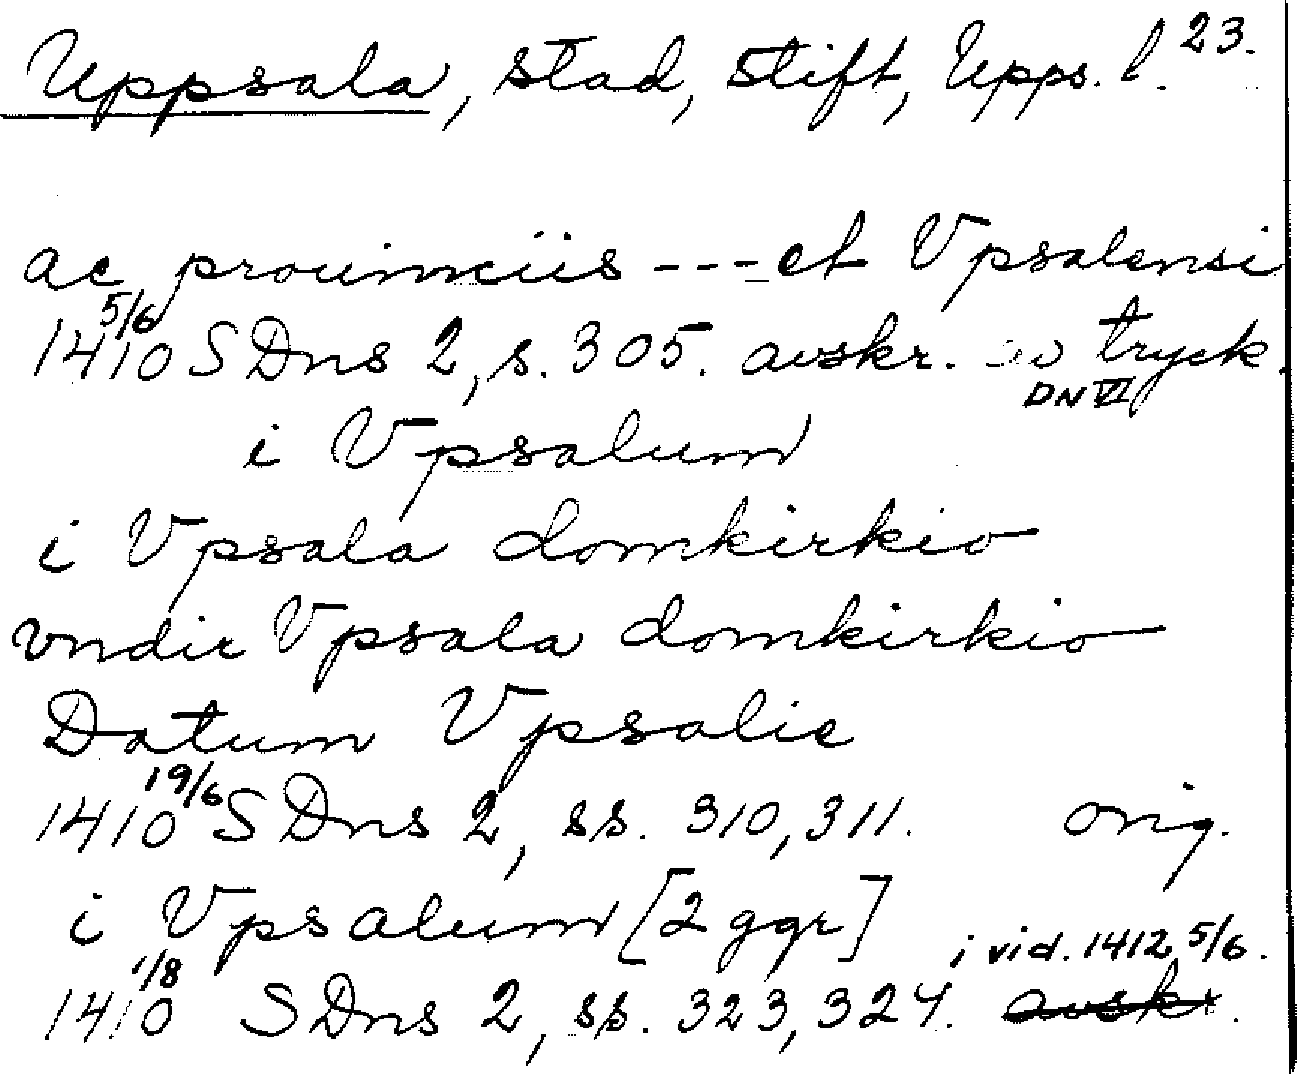 Uppsala, stad, stift, Upps. l. 23.
ac prouinciis --- et Vpsalensi
1410 5/6 SDns 2, s. 305. avskr. av tryck.
DN VI
i Vpsalum
i Vpsala domkirkio
vndir Vpsala domkirkio
Datum Vpsalie
1410 19/6 SDns 2, ss. 310, 311. orig.
i Vpsalum [2 ggr]
i vid. 1412 5/6.
1410 1/8 SDns 2, ss. 323, 324. avskr.